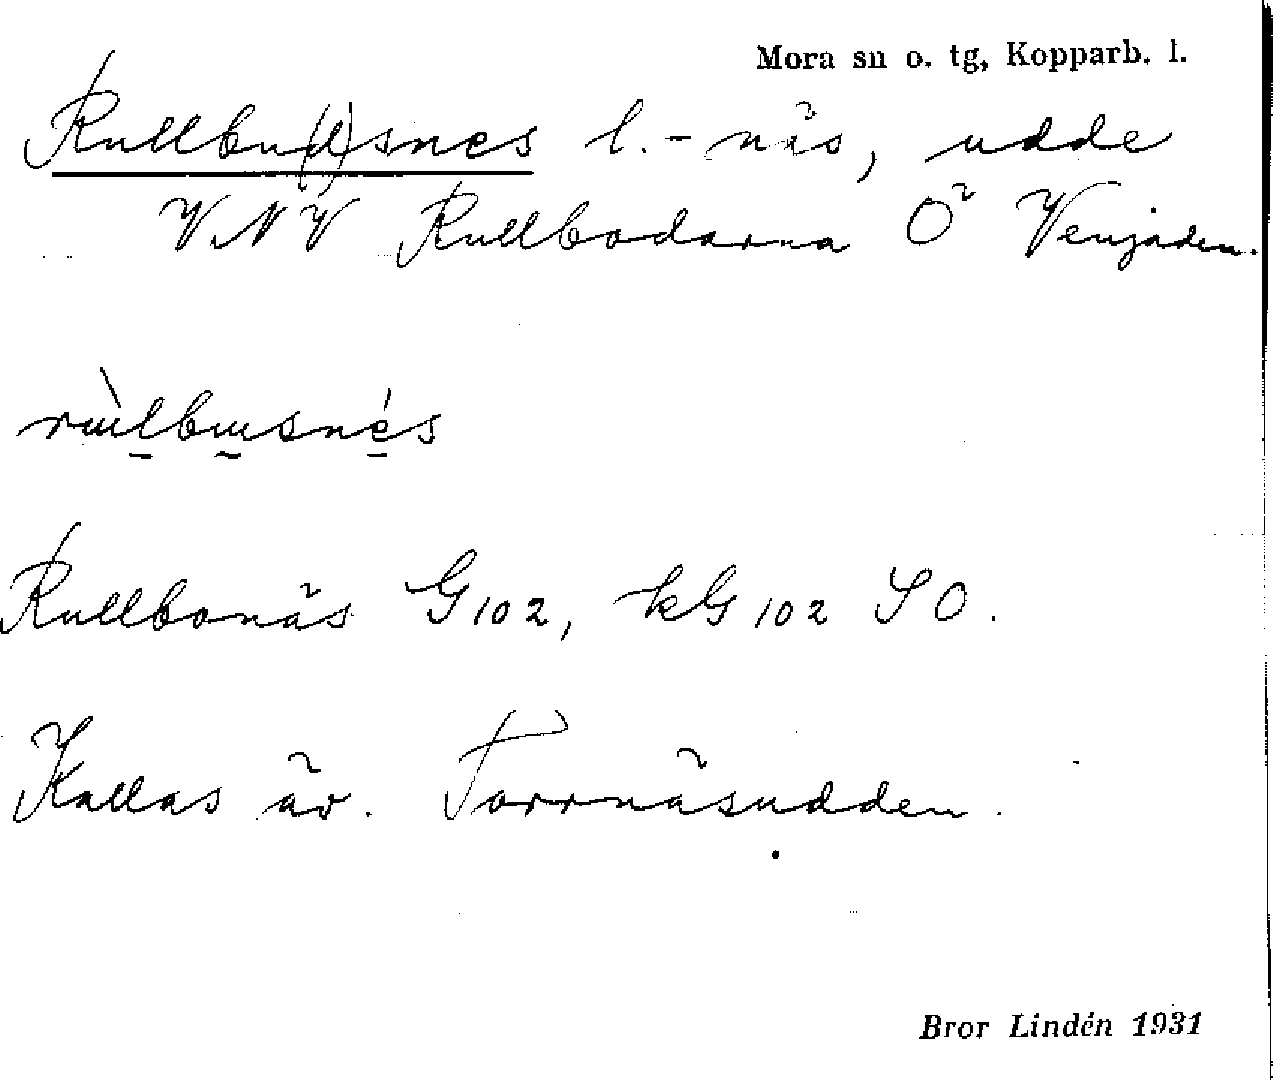 Mora sn o. tg, Kopparb. l.
Rullbu(d)snes l. -näs, udde
VNV Rullbodarna Ö Venjaden.
Rullbonäs G 102, kG 102 SO.
Kallas äv. Torrnäsudden.
Bror Lindén 1931